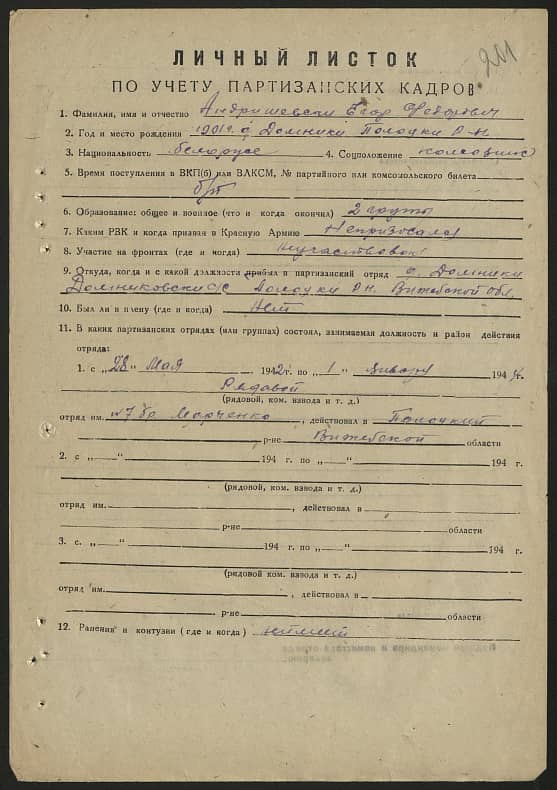 201
ЛИЧНЫЙ ЛИСТОК
ПО УЧЕТУ ПАРТИЗАНСКИХ КАДРОВ
1. Фамилия, имя и отчество Андришевски Егор Федорович
2. Год и место рождения 1901 г. д. Домники Полоцки Р-Н
3. Национальность белорусс 4. Соцположение колхозник
5. Время поступления в ВКП(б) или ВЛКСМ, № партийного или комсомольского билета
б/п
6. Образование: общее и военное (что и когда окончил) 2 групы
7. Каким РВК и когда призван в Красную Армию Непризвался
8. Участие на фронтах (где и когда) неучаствовал
9. Откуда, когда и с какой должности прибыл в партизанский отряд д. Домники
Домниковски с/с Полоцки Р.Н. Витебской обл.
10. Был ли в плену (где и когда) Нет
11. В каких партизанских отрядах (или группах) состоял, занимаемая должность и район действия
отряда:
1. с „28" Мая 1942 г. по „1" января 1944 г.
Рядовой
(рядовой, ком. взвода и т. д.)
отряд им. №7 бр Марченко, действовал в Полоцкий
р-не Витебской области
2. с „—" 194 г. по „—" 194 г.
(рядовой ком. взвода и т. д.)
отряд им. , действовал в
р-не области
3. с. „—" 194 г. по „—" 194 г.
(рядовой ком. взвода и т. д.)
отряд им. , действовал в
р-не области
12. Ранения и контузии (где и когда)